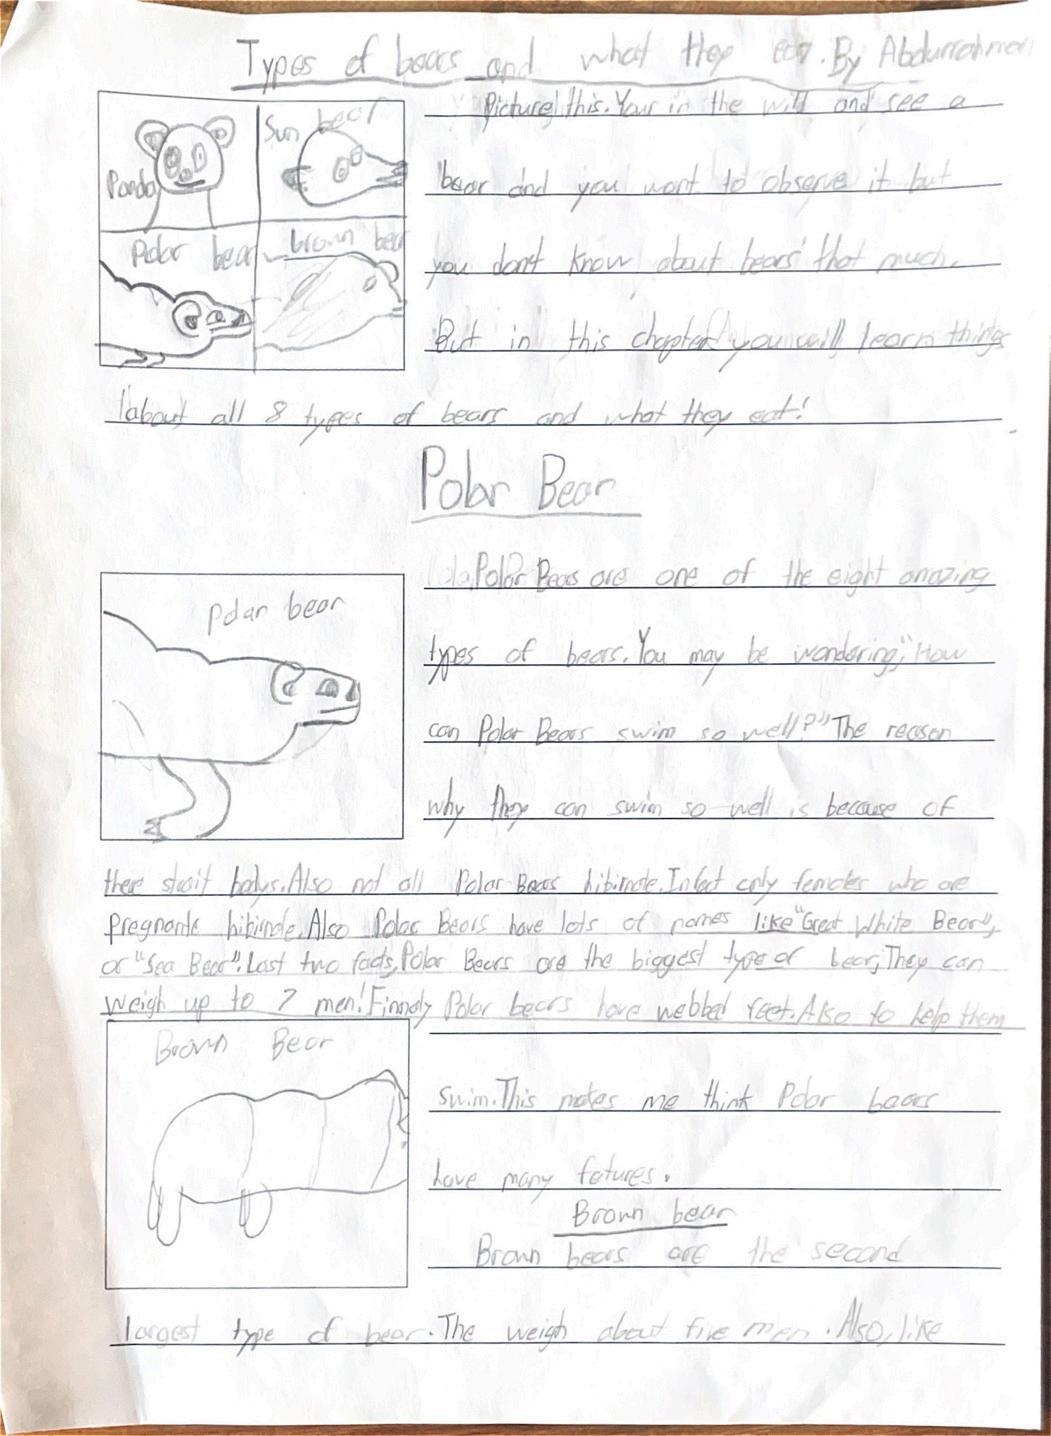 Types of bears and what they eat. By Abdurrahman
Panda
Sun bear
Polar bear
brown bear
Picture this. Your in the wild and see a
bear and you want to observe it but
you don't know about bears that much.
But in this chapter you will learn things
about all 8 types of bears and what they eat!
Polar Bear
Polar bear
Polar Bears are one of the eight amazing
types of bears. You may be wondering, "How
can Polar Bears swim so well?" The reason
why they can swim so well is because of
there bodys. Also not all Polar Bears hibirnate. Infact only females who are
pregnante hibirnde. Also Polar Bears have lots of names like "Great White Bear",
or "Sea Bear". Last two facts, Polar Bears are the biggest type of bear, They can
weigh up to 7 men! Finnaly Polar bears have webbed feet. Also to help them
Brown Bear
swim. This makes me think Polar bears
have many fetures.
Brown bear
Brown bears are the second
largest type of bear. The weigh about five men. Also, like